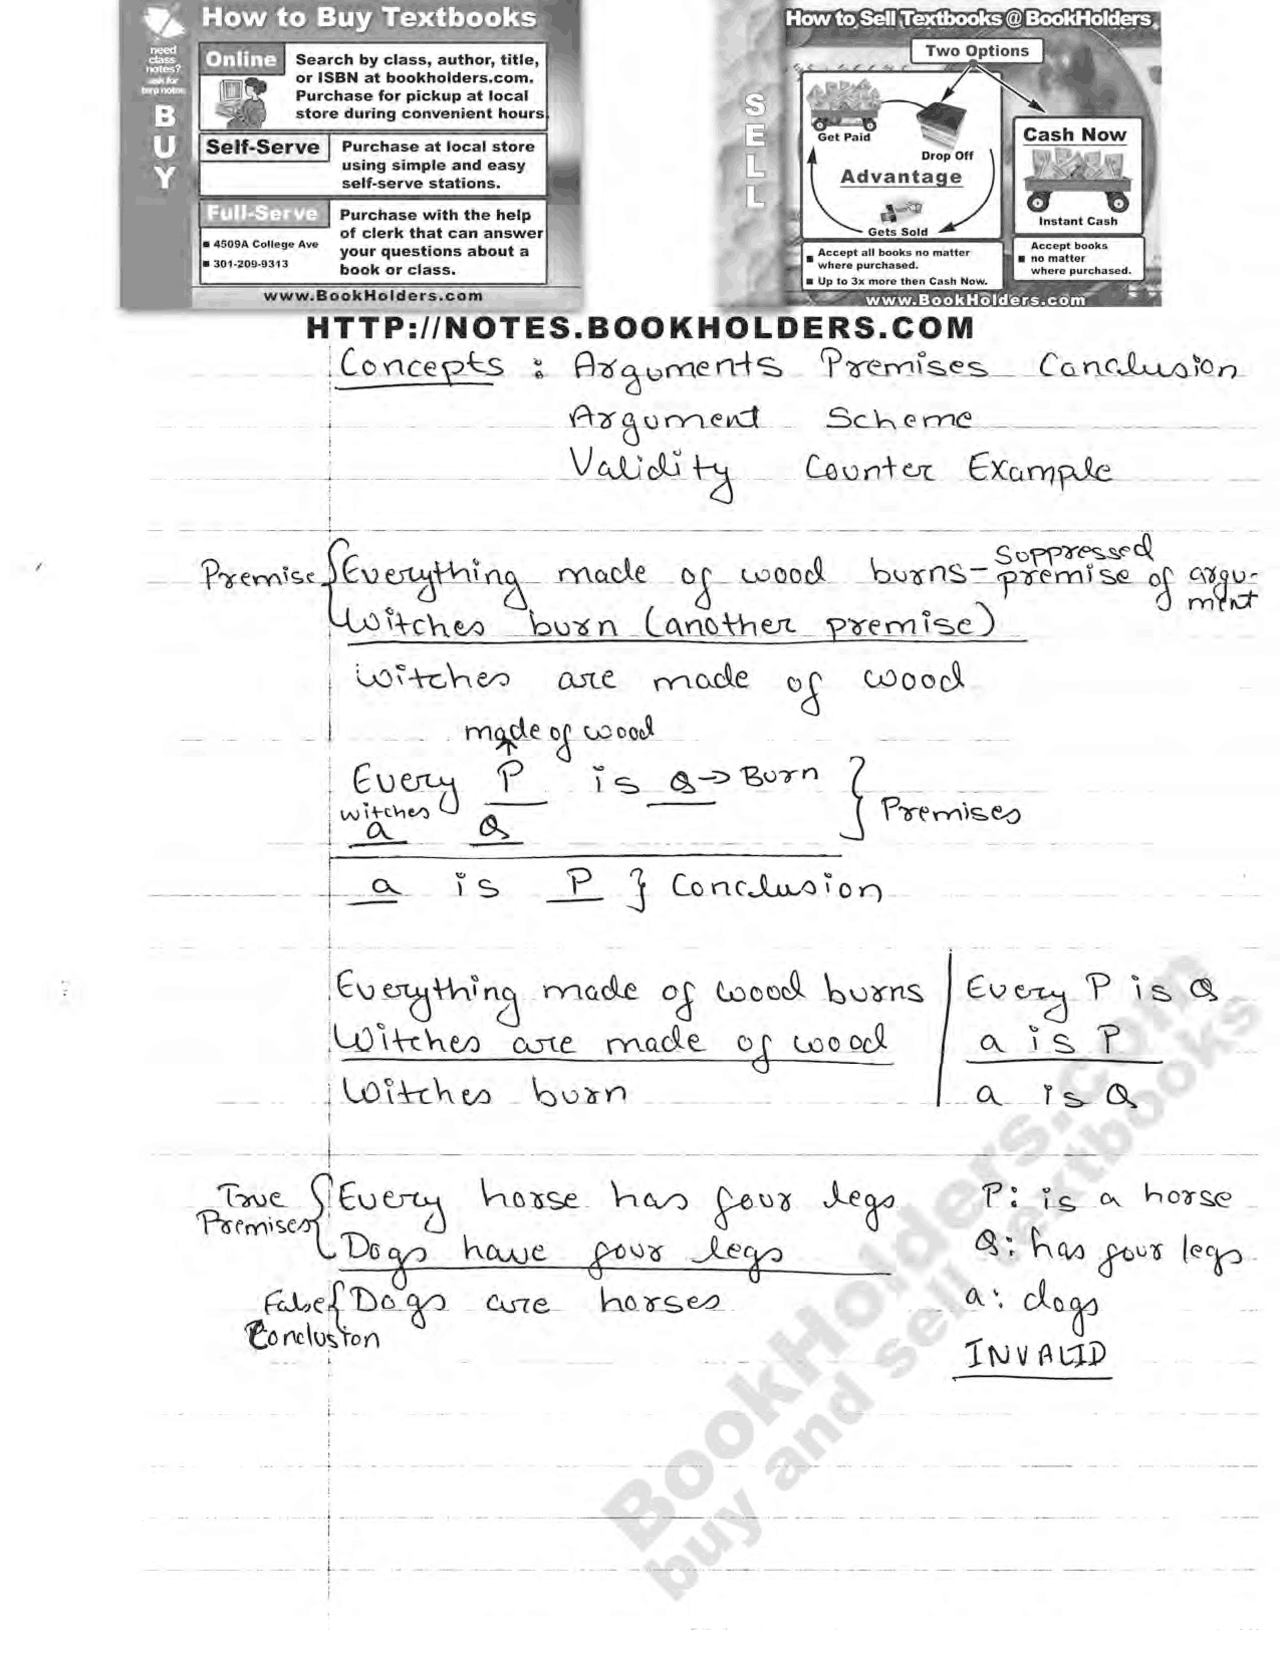 How to Buy Textbooks
need
class
notes?
ask for
terp notes
BUY
Online
Search by class, author, title,
or ISBN at bookholders.com.
Purchase for pickup at local
store during convenient hours.
Self-Serve
Purchase at local store
using simple and easy
self-serve stations.
Full-Serve
Purchase with the help
of clerk that can answer
your questions about a
book or class.
4509A College Ave
301-209-9313
www.BookHolders.com
How to Sell Textbooks @ BookHolders
SELL
Two Options
Get Paid
Drop Off
Advantage
Gets Sold
Accept all books no matter
where purchased.
Up to 3x more then Cash Now.
Cash Now
Instant Cash
Accept books
no matter
where purchased.
www.BookHolders.com
HTTP://NOTES.BOOKHOLDERS.COM
Concepts : Arguments Premises Conclusion
Argument Scheme
Validity Counter Example
Premise { Everything made of wood burns - suppressed premise of argu-
ment
Witches burn (another premise)
Witches are made of wood
made of wood
Every P is Q → Burn
witches
a Q
} Premises
a is P } Conclusion
Everything made of wood burns | Every P is Q
Witches are made of wood | a is P
Witches burn | a is Q
True Premises { Every horse has four legs P: is a horse
Dogs have four legs Q: has four legs
False Conclusion { Dogs are horses a: dogs
INVALID
BookHolders.com
buy and sell textbooks